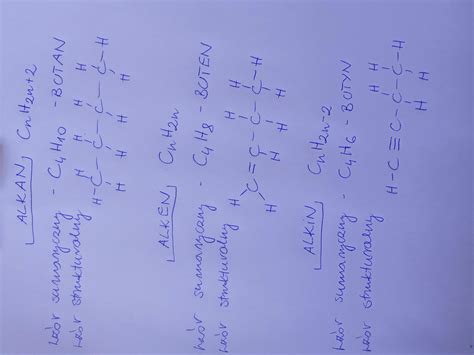 ALKAN CnH2n+2
wzór sumaryczny - C4H10 - BUTAN
wzór strukturalny
H H H H
H-C-C-C-C-H
H H H H
ALKEN CnH2n
wzór sumaryczny - C4H8 - BUTEN
wzór strukturalny
H H H
C=C-C-C-H
H H H H
ALKIN CnH2n-2
wzór sumaryczny - C4H6 - BUTYN
wzór strukturalny
H H
H-C≡C-C-C-H
H H